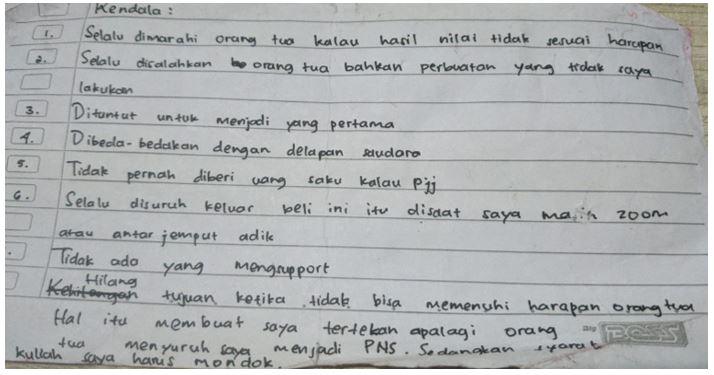 Kendala :
1. Selalu dimarahi orang tua kalau hasil nilai tidak sesuai harapan
2. Selalu disalahkan orang tua bahkan perbuatan yang tidak saya
lakukan
3. Dituntut untuk menjadi yang pertama
4. Dibeda-bedakan dengan delapan saudara
5. Tidak pernah diberi uang saku kalau Pjj
6. Selalu disuruh keluar beli ini itu disaat saya masih zoom
atau antar jemput adik
Tidak ada yang mengsupport
Hilang
Kehilangan tujuan ketika tidak bisa memenuhi harapan orang tua
Hal itu membuat saya tertekan apalagi orang
BOSS
tua menyuruh saya menjadi PNS. Sedangkan syarat
kuliah saya harus mondok.